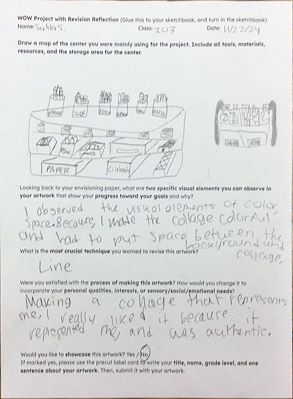 WOW Project with Revision Reflection (Glue this to your sketchbook, and turn in the sketchbook)
Name: S. Class: 203 Date: 11/22/24
Draw a map of the center you were mainly using for the project. Include all tools, materials,
resources, and the storage area for the center.
PAPER
Looking back to your envisioning paper, what are two specific visual elements you can observe in
your artwork that show your progress toward your goals and why?
I observed the visual elements of color,
space. Because, I made the collage colorful
and had to put space between the
background and
collage,
What is the most crucial technique you learned to revise this artwork?
Line
Were you satisfied with the process of making this artwork? How would you change it to
incorporate your personal qualities, interests, or sensory/social/emotional needs?
Making a collage that represents
me, I really liked it because it
represented me, and was authentic.
Would you like to showcase this artwork? Yes / No
If marked yes, please use the precut label card to write your title, name, grade level, and one
sentence about your artwork. Then, submit it with your artwork.